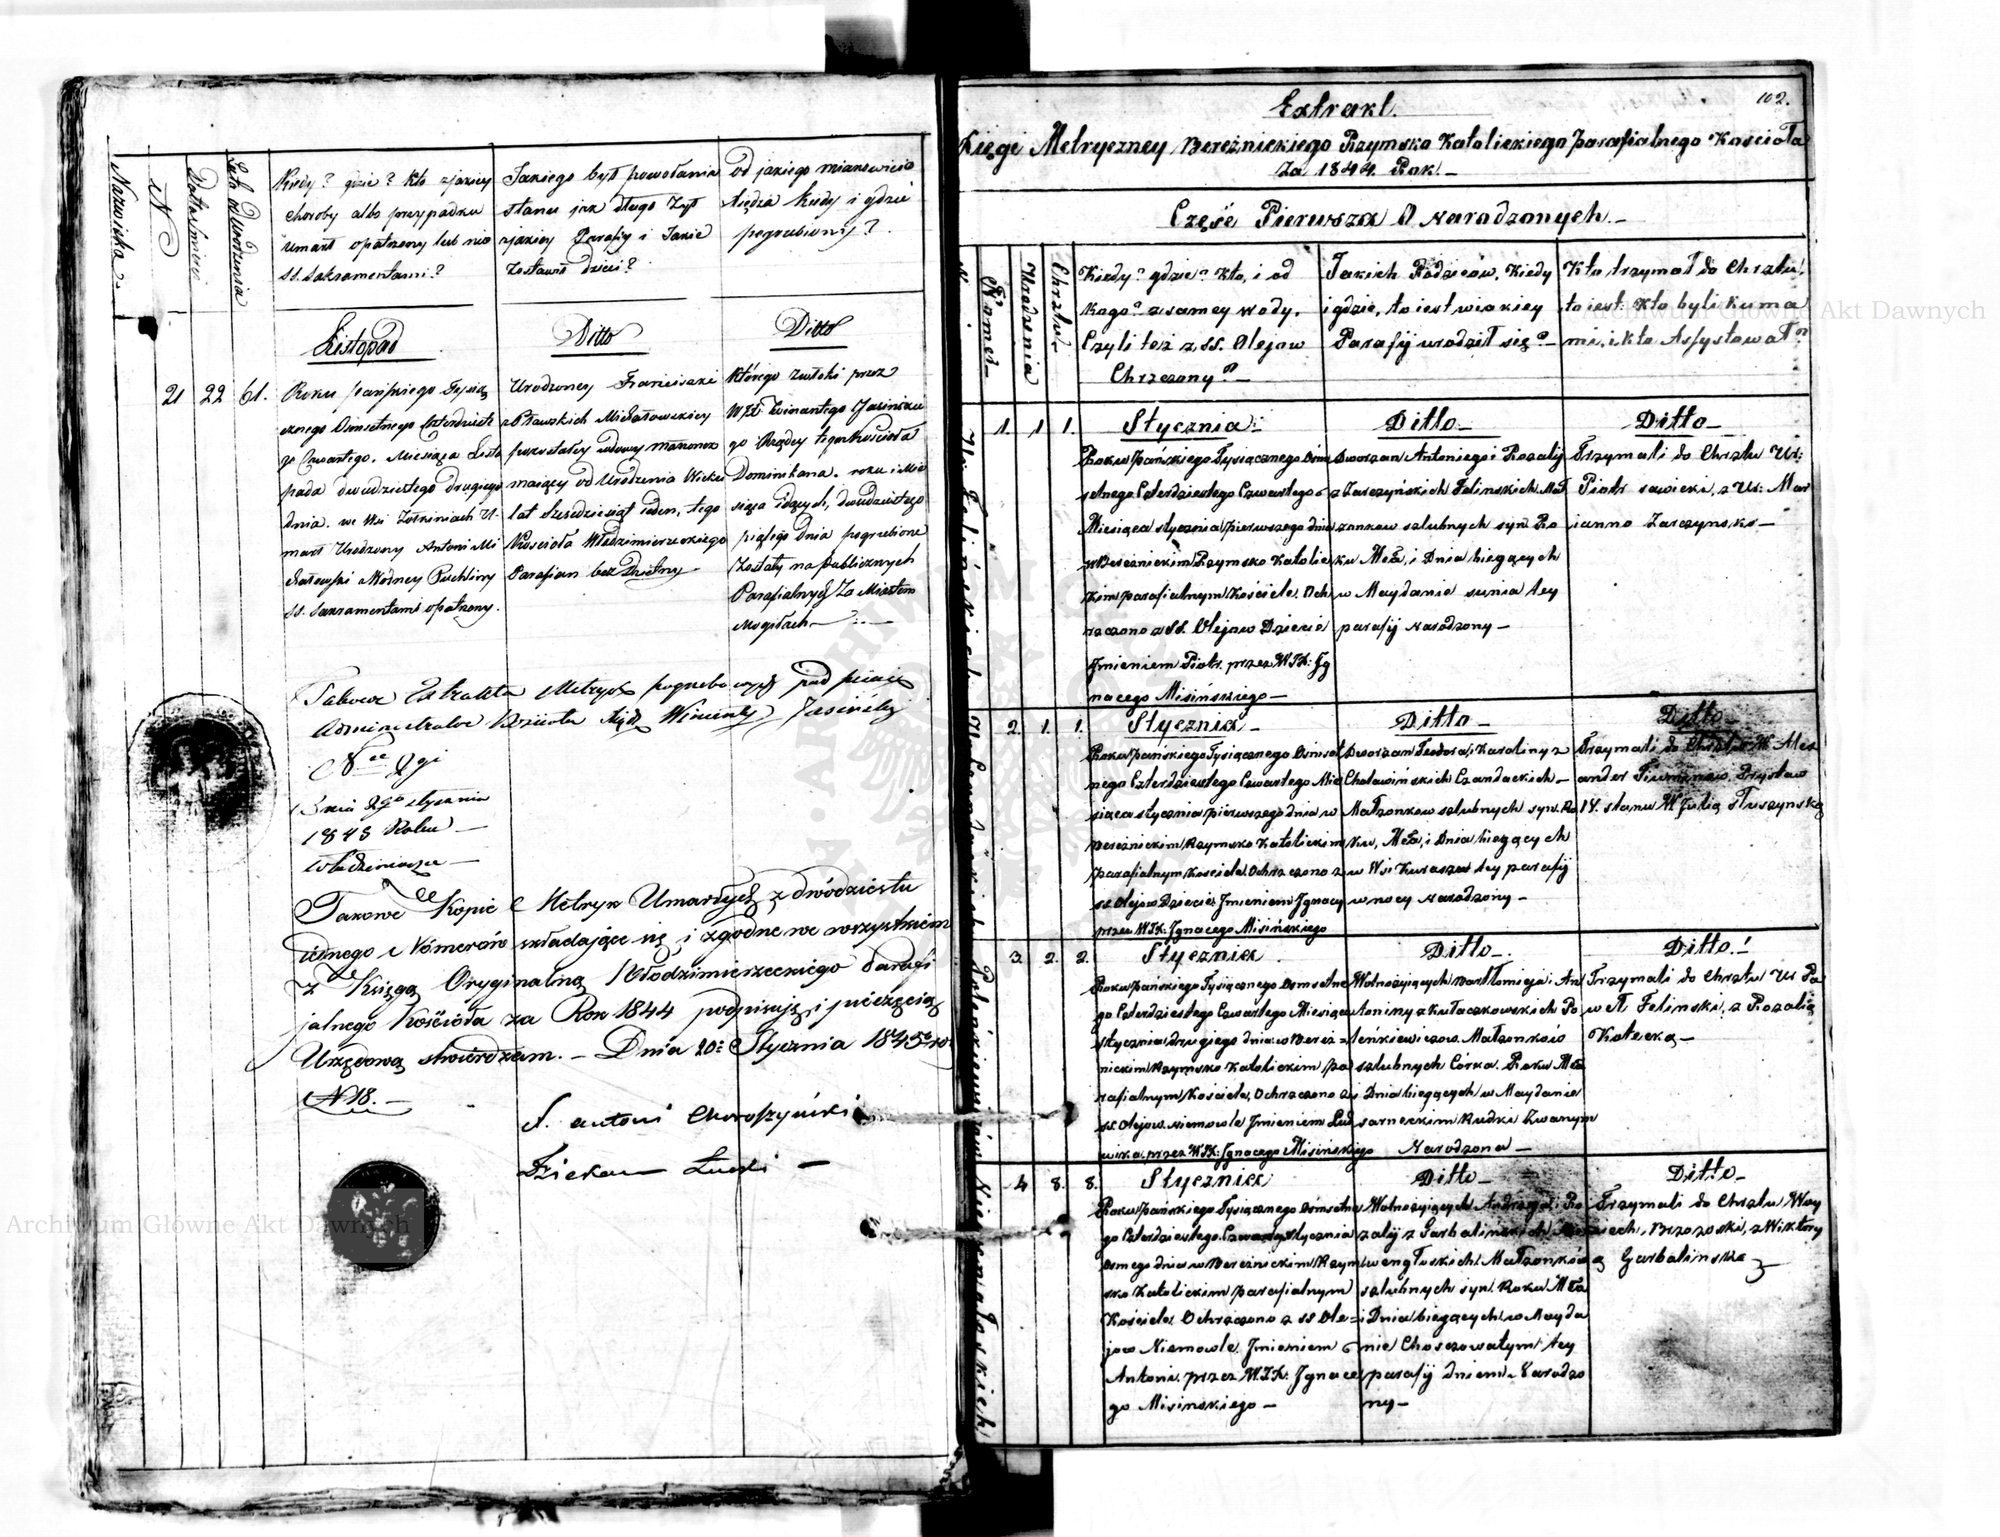 Nazwiska.
N
Data śmierci
Lata od Urodzenia
Kiedy? gdzie? kto z jakiey
choroby albo przypadku
umarł opatrzony lub nie
SS. Sakramentami?
Jakiego był powołania
stanu jak długo żył
z jakiey Parafij i Jakie
zostawił dzieci?
Od jakiego mianowicie
Księdza kiedy i gdzie
pogrzebiony?
Listopad
Ditto
Ditto
21 22 61.
Roku Pańskiego Tysią
cznego Ośmsetnego Czterdzieste
go Czwartego. Miesiąca Listo
pada dwudziestego drugiego
dnia. we Wsi
marł Urodzony Antoni Mi
chałowski Wodney Puchliny
SS. Sakramentami opatrzony.
Urodzoney Franciszki
z Pławskich Michałowskiey
pozostałey wdowy małżonek
maiący od Urodzenia Wieku
lat Sześdziesiąt ieden, tego
Kościoła Włodzimierzeckiego
Parafian bez dzietny.
Którego zwłoki przez
WJX. Winantego Jasińskie
go Rządcy tegoż Kościoła
Dominikana. roku i Mie
siąca idących, dwudziestego
piątego dnia pogrzebione
zostały na publicznych
Parafialnych za Miastem
Mogiłach
Takowe Extrakta Metryk pogrzebowych pod pisuję
Administrator Kościoła Xiądz Wincenty Jasiński
Dnia 29 stycznia
1845 Roku
Włodzimierzec
Takowe Kopie Metryk Umarłych z dwódziestu
iednego Nómerów składające się i zgodne we wszystkiem
z Księgą Oryginalną Włodzimierzeckiego Parafi
jalnego Kościoła za Rok 1844 podpisuję i pieczęcią
Urzędową stwierdzam. – Dnia 20 Stycznia 1845 ro
N 18. –
X. Antoni Choroszyński
Dziekan Łucki –
102.
Extrakt.
Księgi Metryczney Bereźnickiego Rzymsko Katolickiego Parafialnego Kościoła
Za 1844. Rok. –
Część Pierwsza O Narodzonych. –
N
Nomer
Urodzenia
Chrztu
Kiedy? gdzie? kto, i od
Kogo? z samey wody,
Czyli też z SS. Olejow
Chrzczony? –
Jakich Rodziców, Kiedy
i gdzie, to iest w iakiey
Parafij urodził się? –
Kto trzymał do Chrztu,
to iest: kto byli kuma
mi, i kto Assystował?
1. 1 1.
Stycznia. –
Ditto –
Ditto –
Roku Pańskiego Tysiącznego Ośm
setnego Czterdziestego Czwartego
Miesiąca Stycznia pierwszego dnia
w Bereznickim Rzymsko Katolic
kim parafialnym Kościele. Och
rzczono z SS. Olejow Dziecie
Jmieniem Piotr. przez WJX: Jg
nacego Misińskiego –
Dworzan Antoniego i Rozalij
z Zarczyńskich Felinskich Mał
zonkow szlubnych syn. Ro
ku Mca, i Dnia bieżących
w Maydanie sunia tey
parafij Narodzony –
Trzymali do Chrztu Ur:
Piotr Sawicki, z Ur: Mar
ianno Zarczynsko –
2. 1. 1.
Stycznia –
Ditto –
Ditto –
Roku Pańskiego Tysiącznego Osmset
nego Czterdziestego Czwartego Mie
siąca stycznia pierwszego dnia w
Bereznickim Rzymsko Katolickim
Parafialnym Kościele Ochrzczono z
SS Olejow Dziecie Jmieniem Jgnacy
przez WJX. Jgnacego Misińskiego
Dworzan Teodora, i Karoliny z
Czandackich –
Małżonkow szlubnych syn. Ro
ku, Mca, i Dnia bieżących
w Wsi Kurasza tey parafij
w nocy Narodzony –
Trzymali do Chrztu W. Alex
ander
14. stanu W. Julią Słuszynską
3. 2. 2.
Stycznia
Ditto –
Ditto. !
Roku Pańskiego Tysiącznego Osmsetne
go Czterdziestego Czwartego Miesiąca
stycznia drugiego dnia w Berez=
nickim Rzymsko Katolickim Pa
rafialnym Kościele, Ochrzczono z
SS. Olejow. Niemowle Jmieniem Lud
wika, przez WJX. Jgnacego Misińskiego
Wolnożyjących Bartłomieja i An
toniny z Kułaczkowskich Po
leńkiewiczow Małżonków
szlubnych Córka. Roku Mca
i Dnia bieżących w Maydanie
sarneckim Rudka Zwanym
Narodzona –
Trzymali do Chrztu Ur Pa
weł Felinski, z Rozalią
Kotecką –
4 8. 8.
Stycznia
Ditto –
Ditto –
Roku Pańskiego Tysiącznego Osmsetne
go Czterdziestego Czwartego Stycznia
osmego dnia w Bereznickim Rzym
sko Katolickim parafialnym
Kościele, Ochrzczono z SS Ole=
jow Niemowle Jmieniem
Antoni. przez WJX: Jgnace
go Misinskiego –
Wolnożyjących Andrzeja i Ro
zalij z Garbalińskich
Małżonków
szlubnych syn. Roku Mca
i Dnia bieżących w Mayda
nie Choszowatym tey
parafij dniem Narodzo
ny –
Trzymali do Chrztu Woy
ciech, Brzozoski, z Wiktory
ą Garbalinska
Archiwum Główne Akt Dawnych
Archiwum Główne Akt Dawnych